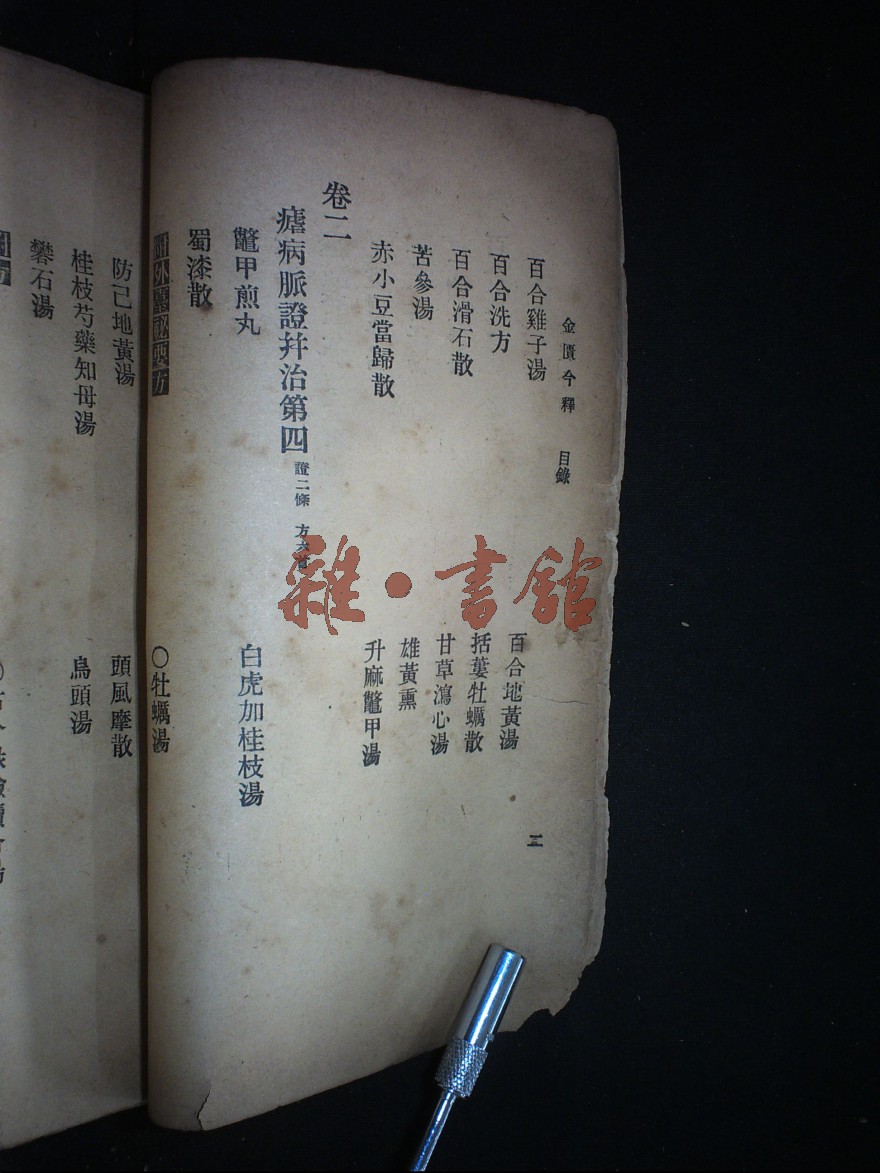 金匱今釋　目錄
三
百合雞子湯　百合地黃湯
百合洗方　括蔞牡蠣散
百合滑石散　甘草瀉心湯
苦參湯　雄黃熏
赤小豆當歸散　升麻鼈甲湯
卷二
瘧病脈證幷治第四　證二條　方六首
鼈甲煎丸　白虎加桂枝湯
蜀漆散
附外臺祕要方　〇牡蠣湯
防己地黃湯　頭風摩散
桂枝芍藥知母湯　烏頭湯
礬石湯
附方
雜·書館